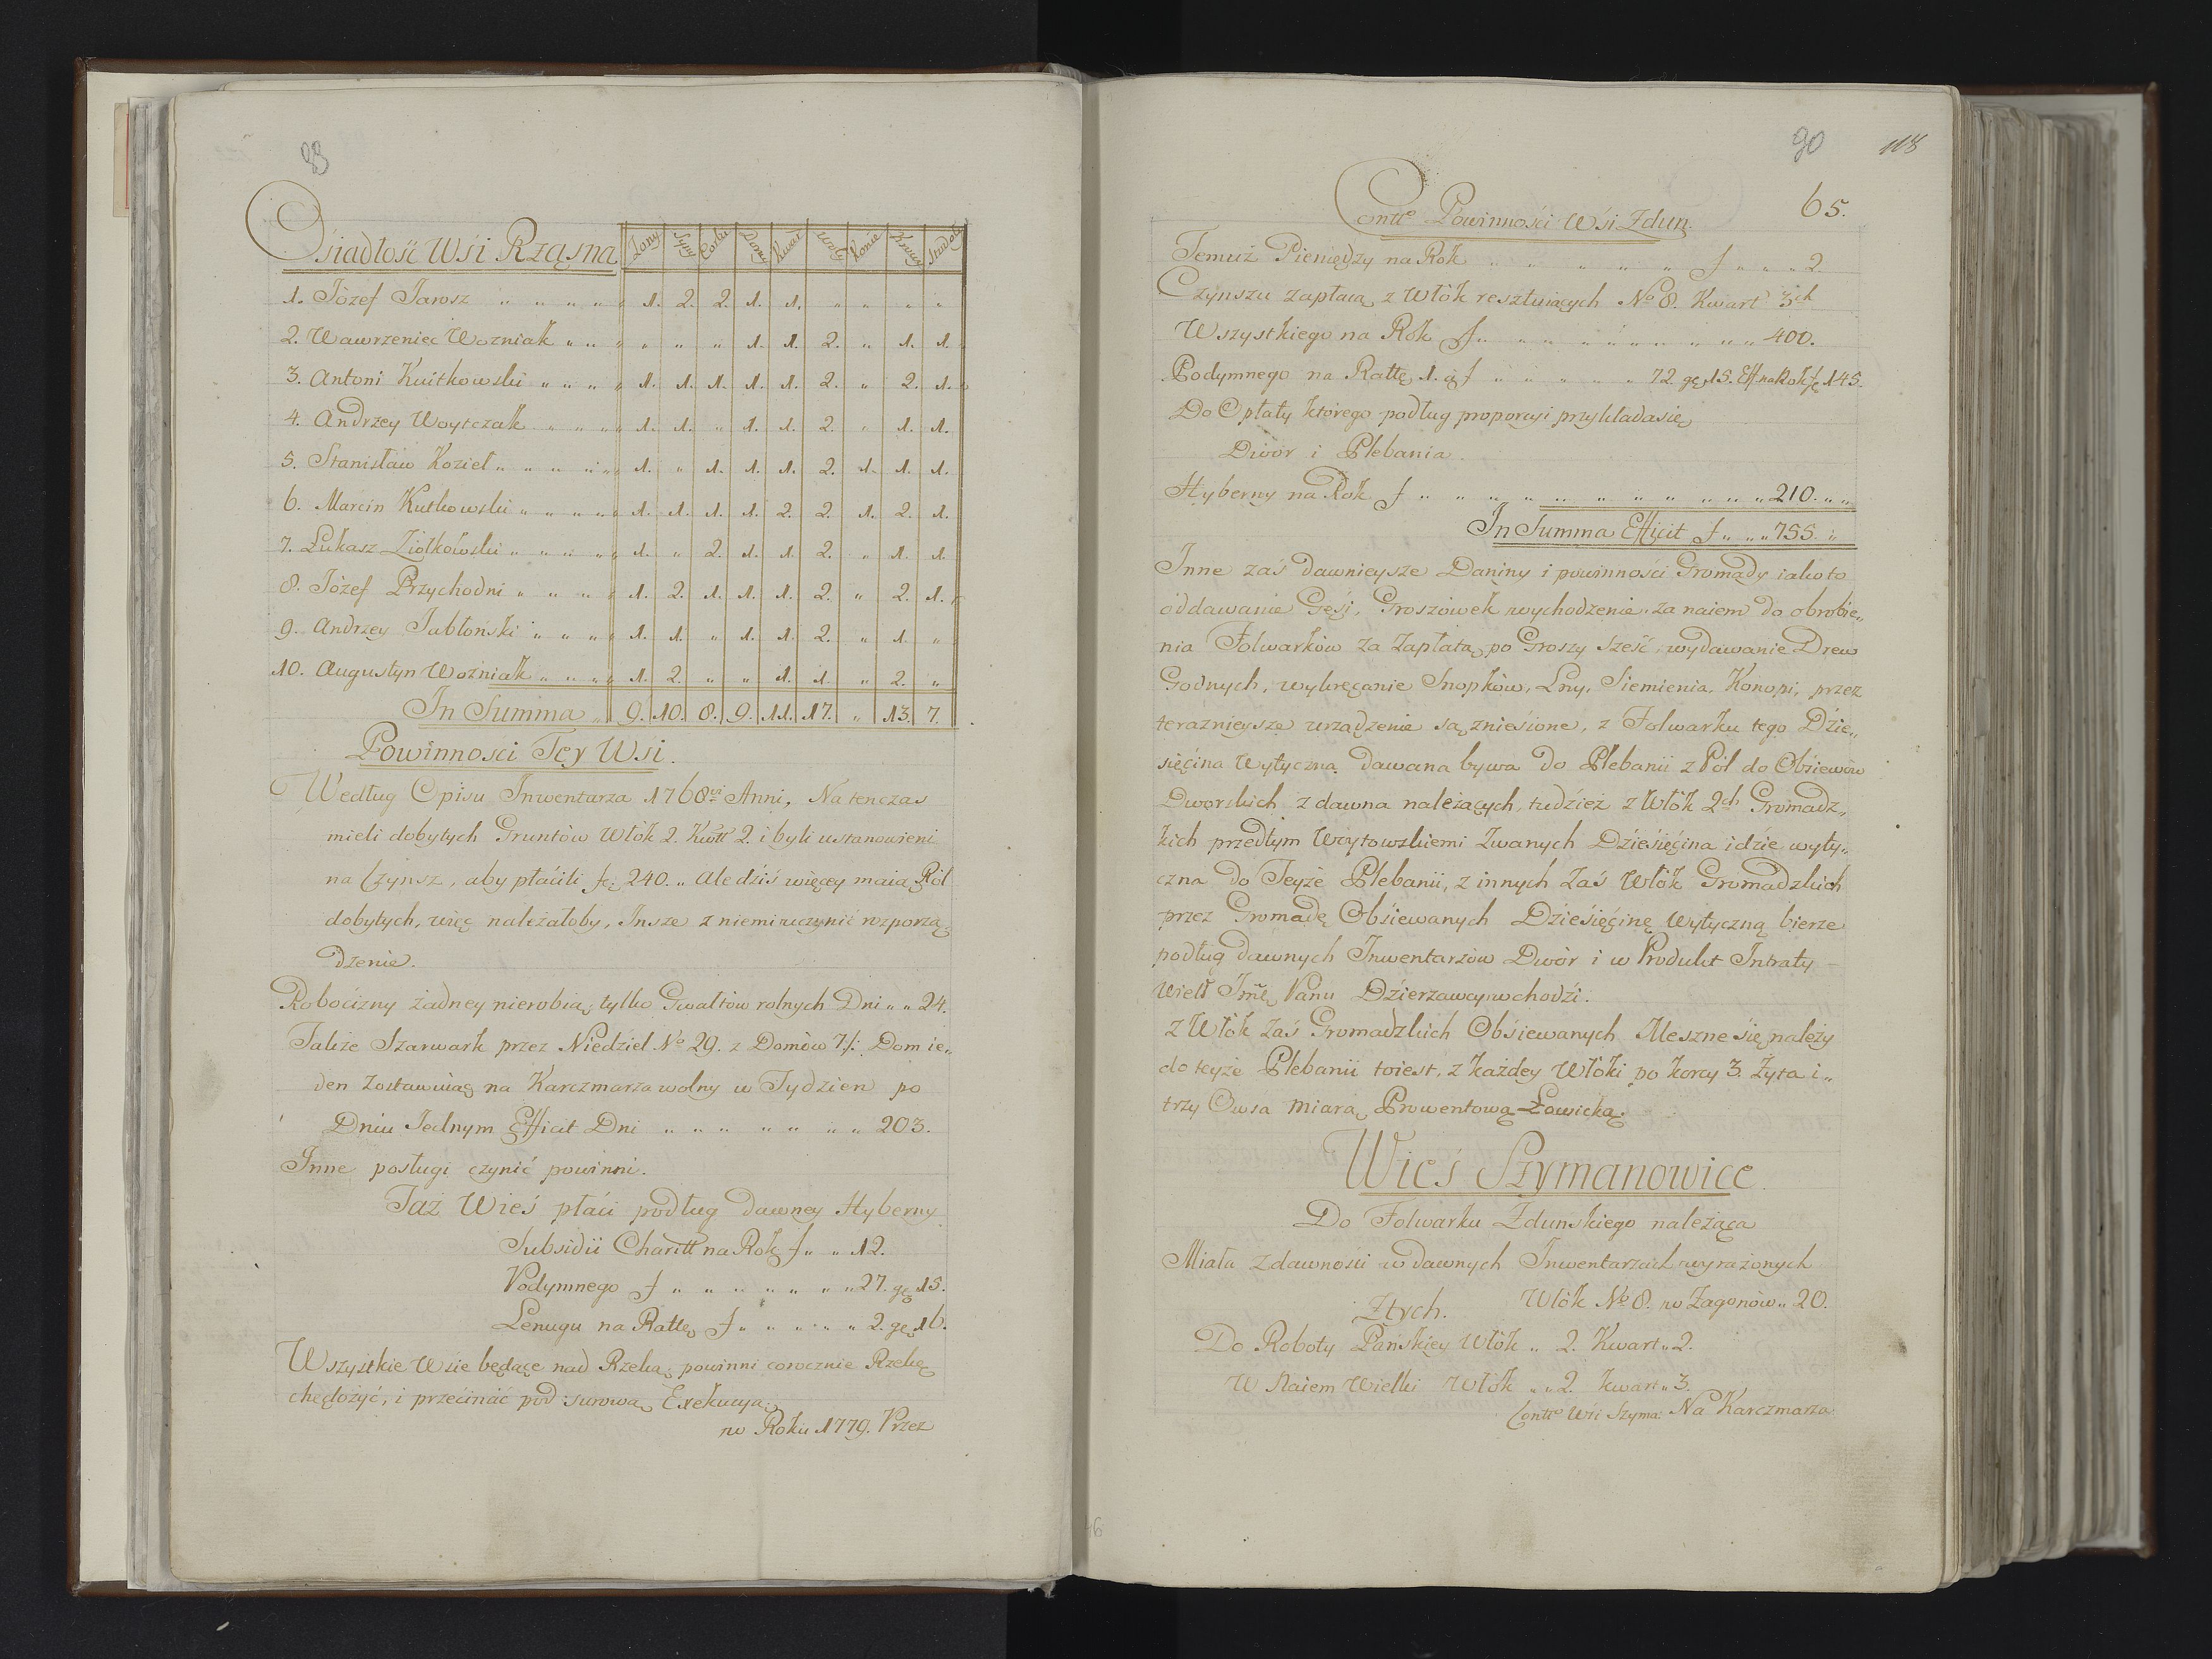 Osiadłość Wsi Rząśna Żony Syny Corki Domy Kwart Woły Konie Krowy Stodoły
1. Józef Jarosz „ „ „ „ „ 1. 2. 2. 1. 1. „ „ „ „
2. Wawrzeniec Wozniak „ „ „ „ „ „ 1. 1. 2. „ 1. 1.
3. Antoni Kuitkowski „ „ „ „ 1. 1. 1. 1. 1. 2. „ 2. 1.
4. Andrzey Woytczak „ „ „ „ 1. 1. „ 1. 1. 2. „ 1. 1.
5. Stanisław Kozieł „ „ „ „ „ 1. „ 1. 1. 1. 2. 1. 1. 1.
6. Marcin Kutkowski „ „ „ „ „ 1. 1. 1. 1. 2. 2. 1. 2. 1.
7. Łukasz Ziołkowski „ „ „ „ „ 1. „ 2. 1. 1. 2. „ 1. 1.
8. Józef Przychodni „ „ „ „ 1. 2. 1. 1. 1. 2. „ 2. 1.
9. Andrzey Jabłonski „ „ „ „ 1. 1. „ 1. 1. 2. „ 1. „
10. Augustyn Wozniak „ „ „ „ 1. 2. „ „ 1. 1. „ 2. „
In Summa „ 9. 10. 8. 9. 11. 17. „ 13. 7.
Powinnosci Tey Wsi.
Według Opisu Inwentarza 1768vi Anni, Na tenczas
mieli dobytych Gruntów Włók 2. Kwtt 2. i byli ustanowieni
na Czynsz, aby płácili fc: 240. „ Ale dziś więcey maią Ról
dobytych, więc należałoby, Insze z niemi uczynić rozporzą„
dzenie.
Robocizny żadney nierobią, tylko Gwałtów rolnych Dni „ „ 24.
Także Szarwark przez Niedziel No 29. z Domòw 7./: Dom ie„
den zostawuiąc na Karczmarza wolny w Tydzien po
Dniu Jednym Efficit Dni „ „ „ „ „ „ „ 203.
Inne posługi czynić powinni.
Taż Wieś płaci podług dawney Hyberny
Subsidii Charitt na Rok f „ „ 12.
Podymnego f „ „ „ „ „ „ „ 27. gę 15.
Lenugu na Rattę f „ „ „ „ „ 2. gę 16.
Wszystkie Wsie będące nad Rzeką, powinni corocznie Rzekę
chędożyć, i przecináć pod surową Exekucyą.
w Roku 1779. Przez
90 118
65.
Contto Powinności Wśi Zdun.
Temuż Pieniędzy na Rok „ „ „ „ „ „ f „ „ „ 2.
Czynszu zapłacą z Włók resztuiących No 8. Kwart 3ch
Wszystkiego na Rok f „ „ „ „ „ „ „ „ „ „ 400.
Podymnego na Rattę 1.ą f „ „ „ „ „ 72. gę 15. Eff. na Rok fę 145.
Do Opłaty którego podług proporcyi przykłada się
Dwór i Plebania.
Hyberny na Rok f „ „ „ „ „ „ „ „ „ „ „ 210. „ „
In Summa Efficit f „ „ „ 755. „
Inne zaś dawnieysze Daniny i powinnośći Gromady iako to
oddawanie Gęśi, Groszówek wychodzenie za naiem do obrobie„
nia Folwarków za Zapłatą po Groszy sześć, wydawanie Drew
Godnych, wykręcanie Snopków, Lny, Siemienia, Konopi, przez
teraznieysze urządzenie są znieśione, z Folwarku tego Dzie„
sięćina Wytyczna dawana bywa Do Plebanii z Pól do Obśiewów
Dworskich z dawna należących, tudźież z Włók 2ch Gromadz„
kich przedtym Woytowskiemi Zwanych Dźieśięćina idźie wyty„
czna do Teyże Plebanii, z innych Zaś Włók Gromadzkich
przez Gromadę Obśiewanych Dźieśięćinę wytyczną bierze
podług dawnych Inwentarzów Dwór i w Produkt Intraty
Wielł Jmę Panu Dźierzawcy wchodźi.
z Włók Zaś Gromadzkich Obśiewanych Meszne się należy
do teyże Plebanii toiest, z każdey Włóki po korcy 3. Żyta i„
trzy Owsa miarą Prowentową Łowicką.
Wieś Szymanowice
Do Folwarku Zdunskiego należąca
Miała z dawnosci w dawnych Inwentarzach wyrażonych
Włók No 8. w Zagonów „ 20.
Z tych.
Do Roboty Pańskiey Włók „ 2. Kwart „ 2.
W Naiem Wielki Włók „ „ 2. kwart „ 3.
Contto Wśi Szyma: Na Karczmarza